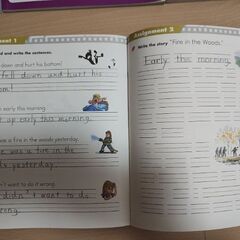 ment 1
d and write the sentences.
down and hurt his bottom!
fell down and hurt his
om!
early this morning.
up early this morning.
was a fire in the woods yesterday.
was a fire in the
ods yesterday.
didn't want to do it wrong.
didn't want to do
rong.
Assignment 2
Write the story "Fire in the Woods."
Early this morning,